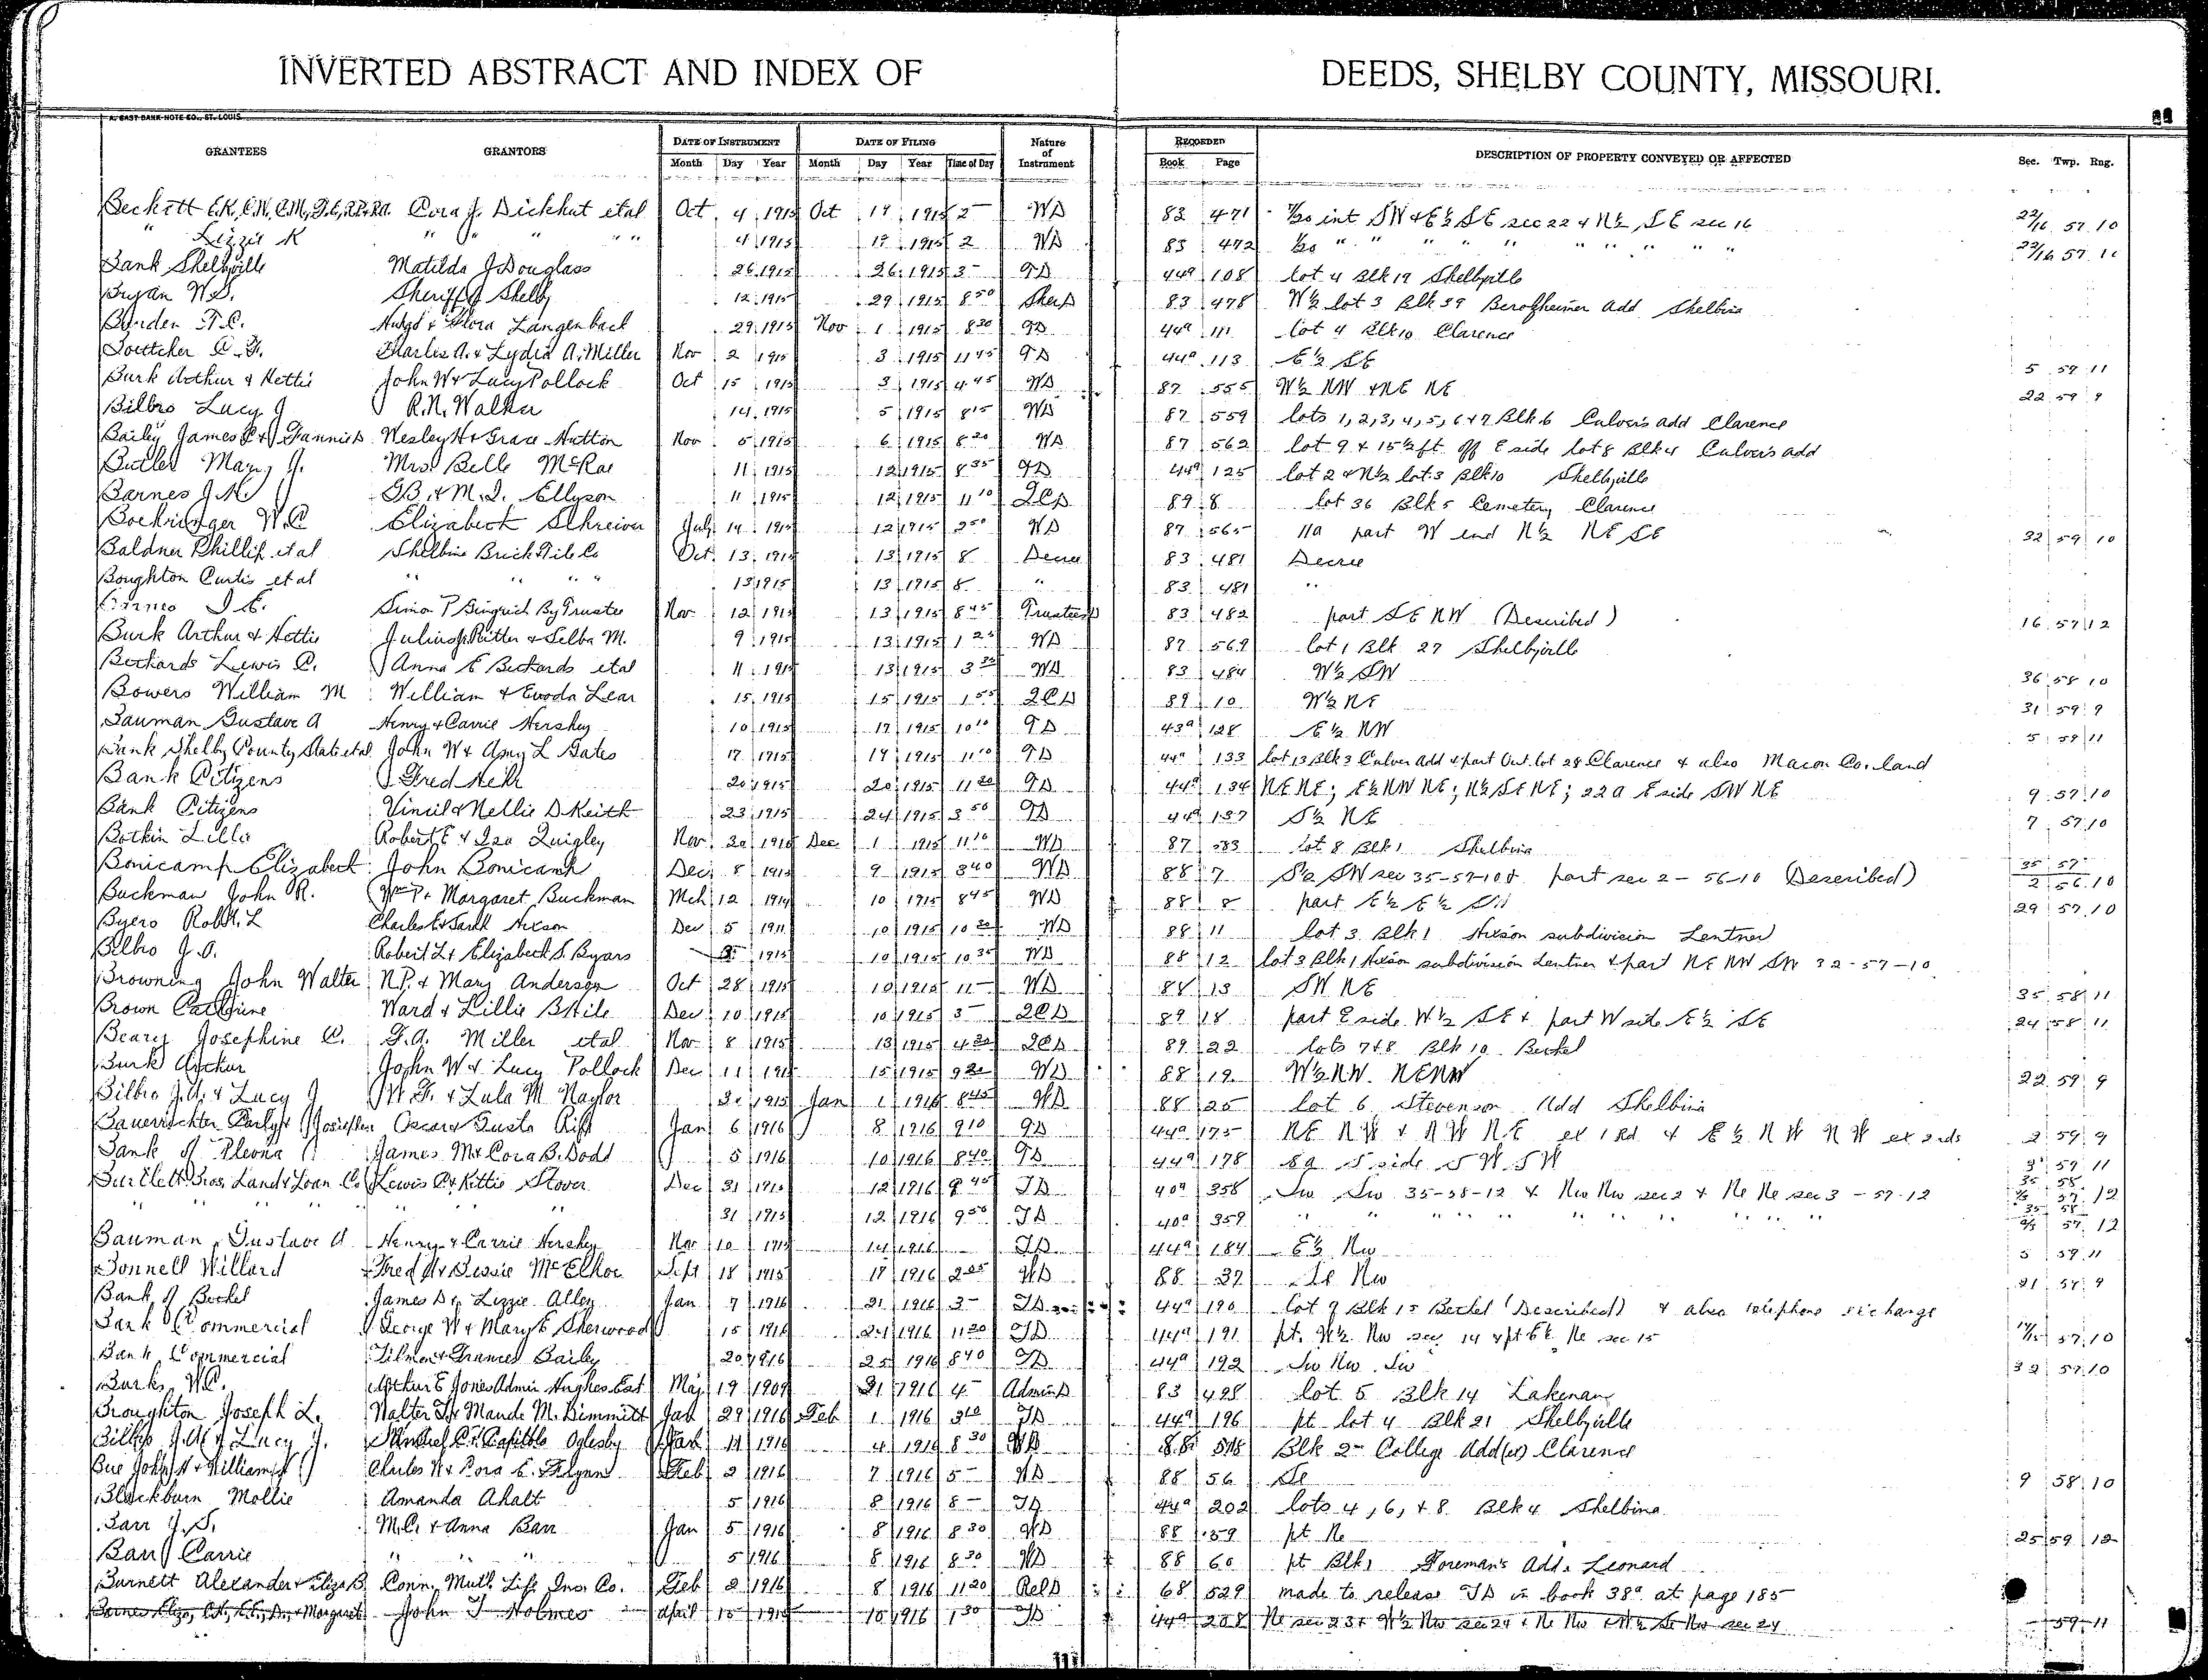 INVERTED ABSTRACT AND INDEX OF DEEDS, SHELBY COUNTY, MISSOURI.
A. GAST BANK NOTE CO., ST. LOUIS.
GRANTEES GRANTORS DATE OF INSTRUMENT DATE OF FILING Nature of Instrument RECORDED DESCRIPTION OF PROPERTY CONVEYED OR AFFECTED Sec. Twp. Rng.
Month Day Year Month Day Year Time of Day Book Page
Beckett E.K., C.W., C.M., Cora J. Dickhut etal Oct 4 1915 Oct 19 1915 2 WD 83 471 1/20 int SW & E½ SE sec 22 & N½ SE sec 16 22/16 57 10
" Lizzie K " " " " 4 1915 19 1915 2 WD 83 472 1/20 " " " " " " " " " 22/16 57 10
Bank Shelbyville Matilda J Douglass 26 1915 26 1915 3 TD 44a 108 lot 4 Blk 19 Shelbyville
Bryan W.S. Sheriff of Shelby 12 1915 29 1915 8 50 SherD 83 478 W½ lot 3 Blk 39 Berofheimer add Shelbina
Burden T.C. August & Flora Langenbach 29 1915 Nov 1 1915 8 30 TD 44a 111 lot 4 Blk 10 Clarence
Boettcher C.F. Charles A. & Lydia A. Miller Nov 2 1915 3 1915 11 45 TD 44a 113 E½ SE 5 59 11
Burk Arthur & Hettie John W & Lucy Pollock Oct 15 1915 3 1915 4 45 WD 87 555 W½ NW & NE NE 22 59 9
Bilbro Lucy J R.N. Walker 14 1915 5 1915 8 15 WD 87 559 lots 1, 2, 3, 4, 5, 6 & 7 Blk 6 Culver's add Clarence
Bailey James C & Fannie D Wesley H & Grace Hutton Nov 5 1915 6 1915 8 20 WD 87 562 lot 9 & 15½ ft off E side lot 8 Blk 4 Culver's add
Butler Mary J. Mrs. Belle McRae 11 1915 12 1915 8 35 TD 44a 125 lot 2 & N½ lot 3 Blk 10 Shelbyville
Barnes J.N. G.B. & M.I. Ellyson 11 1915 12 1915 11 10 QCD 89 8 lot 36 Blk 5 Cemetery Clarence
Boehringer W.C Elizabeth Schreiver July 14 1915 12 1915 2 50 WD 87 565 11a part W end N½ NE SE 32 59 10
Baldner Phillip et al Shelbina Brick Tile Co Oct 13 1915 13 1915 8 Decree 83 481 Decree
Boughton Curtis et al " " " " 13 1915 13 1915 8 " 83 481 "
Barnes J.E. Simon P Gingrich By Trustee Nov 12 1915 13 1915 8 45 TrusteesD 83 482 part SE NW (Described) 16 57 12
Burk Arthur & Hettie Julius J. Ritter & Selba M. 9 1915 13 1915 1 25 WD 87 569 lot 1 Blk 27 Shelbyville
Bechards Lewis C. Anna E Bechards etal 11 1915 13 1915 3 30 WD 83 484 W½ SW 36 58 10
Bowers William M William & Evoda Lear 15 1915 15 1915 1 55 QCD 89 10 W½ NE 31 59 9
Bauman Gustave A Henry & Carrie Hershey 10 1915 17 1915 10 10 TD 43a 128 E½ NW 5 59 11
Bank Shelby County State etal John W & Amy L Gates 17 1915 19 1915 11 10 TD 44a 133 lot 13 Blk 3 Culver Add & part Out lot 28 Clarence & also Macon Co. land
Bank Citizens Fred Hehr 20 1915 20 1915 11 20 TD 44a 134 NE NE; E½ NW NE; N½ SE NE; 22a E side SW NE 9 57 10
Bank Citizens Vincil & Nellie D. Keith 23 1915 24 1915 3 50 TD 44a 137 S½ NE 7 57 10
Botkin Lillie Robert E & Iza Quigley Nov 30 1915 Dec 1 1915 11 10 WD 87 583 lot 8 Blk 1 Shelbina
Bonicamp Elizabeth John Bonicamp Dec 8 1915 9 1915 3 40 WD 88 7 S½ SW sec 35-57-10 & part sec 2-56-10 (Described) 35 57 / 2 56 10
Buckman John R. Wm P & Margaret Buckman Mch 12 1914 10 1915 8 45 WD 88 8 part E½ E½ SW 29 57 10
Byers Robt. L Charles E & Sarah Hixson Dec 5 1911 10 1915 10 30 WD 88 11 lot 3 Blk 1 Hixson subdivision Lentner
Bilbro J.A. Robert L & Elizabeth S. Byars 1915 10 1915 10 35 WD 88 12 lot 3 Blk 1 Hixson subdivision Lentner & part NE NW SW 32-57-10
Browning John Walter N.P. & Mary Anderson Oct 28 1915 10 1915 11 WD 88 13 SW NE 35 58 11
Brown Catherine Ward & Lillie B Hile Dec 10 1915 10 1915 3 QCD 89 18 part E side W½ SE & part W side E½ SE 24 58 11
Bearcy Josephine C. F.A. Miller etal Nov 8 1915 13 1915 4 30 QCD 89 22 lots 7 & 8 Blk 10 Bethel
Burk Arthur John W & Lucy Pollock Dec 11 1915 15 1915 9 20 WD 88 19 W½ NW. NENW 22 59 9
Bilbro J.A. & Lucy J W.F. & Lula M. Naylor 30 1915 Jan 1 1916 8 45 WD 88 25 Lot 6 Stevenson Add Shelbina
Bauerrichter Oscar & Gusta Rift Jan 6 1916 8 1916 9 10 TD 44a 175 NE NW & NW NE ex 1 Rd & E½ NW NW ex 2 rds 2 59 9
Bank of Plevna James M & Cora B. Dodd 5 1916 10 1916 8 40 TD 44a 178 8a S side SW SW 3 59 11
Bartlett Bros. Land & Loan Co Lewis C & Kittie Stover Dec 31 1915 12 1916 9 45 TD 40a 358 Sw Sw 35-58-12 & Nw Nw sec 2 & Ne Ne sec 3-57-12 35 58 / 2/3 57 12
" " " " " " 31 1915 12 1916 9 50 TD 40a 359 " " " " " " " " " " " 35 58 / 2/3 57 12
Bauman Gustave A Henry & Carrie Hershey Nov 10 1915 14 1916 TD 44a 184 E½ Nw 5 59 11
Bonnell Willard Fred A & Bessie McElhoe Sept 18 1915 17 1916 2 05 WD 88 37 Se Nw 21 57 9
Bank of Bethel James D & Lizzie Alley Jan 7 1916 21 1916 3 TD 44a 190 lot 9 Blk 15 Bethel (Described) & also telephone exchange
Bank Commercial George W & Mary E Sherwood 15 1916 24 1916 11 20 TD 44a 191 pt. W½ Nw sec 14 & pt E½ Ne sec 15 14/15 57 10
Bank Commercial Tilmon & Frances Bailey 20 1916 25 1916 8 40 TD 44a 192 Sw Nw Sw 32 57 10
Burks W.C. Arthur E Jones Admin Hughes Est. May 19 1909 31 1916 4 AdminD 83 498 lot 5 Blk 14 Lakenan
Broughton Joseph L. Walter T & Maude M. Dimmitt Jan 29 1916 Feb 1 1916 3 10 TD 44a 196 pt lot 4 Blk 21 Shelbyville
Bilbro J.A. & Lucy J. Oglesby Jan 11 1916 4 1916 8 30 WD 88 Blk 2 College Add(w) Clarence
Bue John H & William Charles W & Cora E. Flynn Feb 2 1916 7 1916 5 WD 88 56 Se 9 58 10
Blackburn Mollie Amanda Ahalt 5 1916 8 1916 8 TD 44a 202 lots 4, 6, & 8 Blk 4 Shelbina
Barr J.S. M.C. & Anna Barr Jan 5 1916 8 1916 8 30 WD 88 59 pt Ne 25 59 12
Barr Carrie " " " 5 1916 8 1916 8 30 WD 88 60 pt Blk 1 Foreman's Add. Leonard
Burnett Alexander & Eliza B. Conn. Mutl. Life Ins. Co. Feb 2 1916 8 1916 11 20 RelD 68 529 made to release TD in book 38a at page 185
Barnes Eliza, & Margaret John T Holmes april 15 1915 10 1916 1 30 TD 44a 208 Ne sec 23 & W½ Nw sec 24 & Ne Nw & W½ Se Nw sec 24 59 11